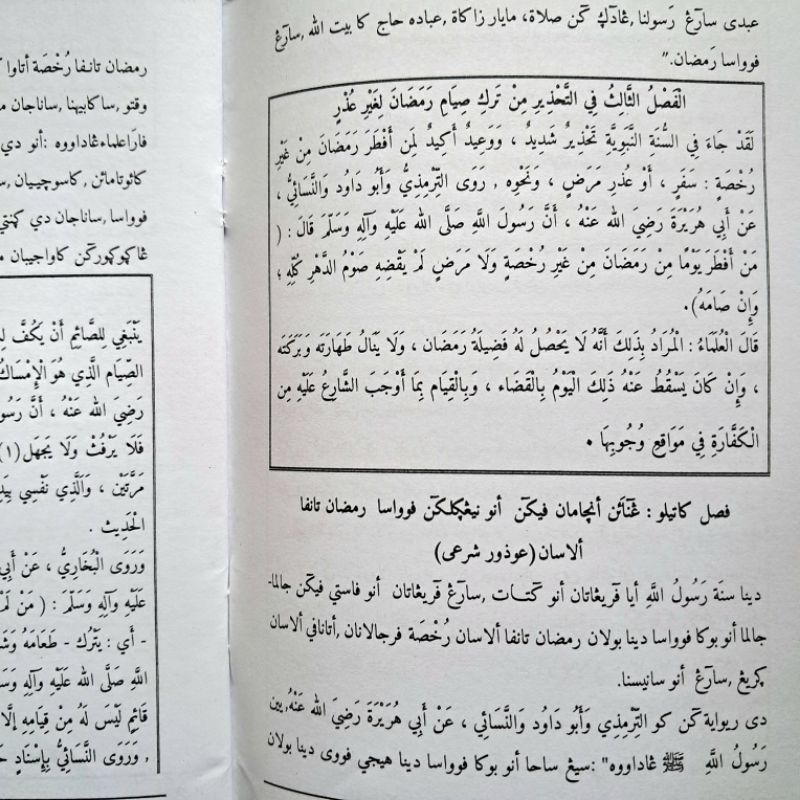 عبدى سارڠ رَسولنا, ڠادݢ ݢن صلاة، مايار زاكاة, عباده حاج كا بيت الله ,سارڠ
فوواسا رَمضان."
الْفَصْلُ الثَّالِثُ فِي التَّحْذِيرِ مِنْ تَركِ صِيَامِ رَمَضَانَ لِغَيْرِ عُذْرٍ
لَقَدْ جَاءَ فِي السُّنَّةِ النَّبَوِيَّةِ تَحْذِيرٌ شَدِيدٌ ، وَوَعِيدٌ أَكِيدٌ لِمَن أَفْطَرَ رَمَضَانَ مِنْ غَيْرِ
رُخْصَةٍ : سَفَرٍ ، أَوْ عُذرِ مَرَضٍ ، وَنَحْوِه , رَوَى التِّرْمِذِيُّ وَأَبُو دَاوُد وَالنَّسَائِيُّ ،
عَنْ أَبِي هُرَيْرَةَ رَضِيَ الله عَنْهُ ، أَنَّ رَسُولَ اللَّهِ صَلَّى الله عَلَيْهِ وَآلِهِ وَسَلَّمَ قَالَ : (
مَنْ أَفْطَرَ يَوْمًا مِنْ رَمَضَانَ مِنْ غَيْرِ رُخْصَةٍ وَلَا مَرَضٍ لَمْ يَقْضِهِ صَوْمُ الدَّهْرِ كُلِّهِ ؛
وَإِنْ صَامَهُ).
قَالَ الْعُلَمَاءُ : الْمُرَادُ بِذَلِكَ أَنَّهُ لَا يَحْصُلُ لَهُ فَضِيلَةُ رَمَضَانَ ، وَلَا يَنَالُ طَهَارَتَه وَبَرَكَتَه
، وَإِنْ كَانَ يَسْقُطُ عَنْهُ ذَلِكَ الْيَوْمُ بِالْقَضَاء ، وَبِالْقِيَامِ بِمَا أَوْجَبَ الشَّارِعُ عَلَيْهِ مِن
الْكَفَّارَةِ فِي مَوَاقِعِ وُجُوبِهَا .
فصل كاتيلو : ڠنَائن أنچامان فيكن أنو نيڠݢلكن فوواسا رمضان تانفا
ألاسان (عوذور شرعى)
دينا سنَة رَسُولُ اللَّهِ أيا ڤريڠاتان أنو كتات ,سارڠ ڤريڠاتان أنو فاستي فيكن جالما-
جالما أنو بوكا فوواسا دينا بولان رمضان تانفا ألاسان رُخْصَة فرجالانان ,أتانافي ألاسان
ݢريڠ ,سارڠ أنو سانيسنا.
دى رِيواية كن كو التِّرْمِذِي وَأَبُو دَاوُد وَالنَّسَائِي ، عَنْ أَبِي هُرَيْرَةَ رَضِيَ الله عَنْهُ,يين
رَسُولُ اللَّهِ ﷺ ڠاداووه" :سيڠ ساحا أنو بوكا فوواسا دينا هيجي فووى دينا بولان
رمضان تانفا رُخْصَة أتاوا
وقتو ,ساكابيهنا ,ساناجان
فارَاعلماءڠاداووه :أنو دي
كائوتامائن, كاسوچييان
فوواسا ,ساناجان دي
كاواجيبان
يَنْبَغِي لِلصَّائِمِ أَنْ يَكُفَّ
الصِّيَام الَّذِي هُوَ الْإِمْسَاكُ
رَضِيَ الله عَنْهُ ، أَنَّ رَسُو
فَلَا يَرْفُثْ وَلَا يَجهَل(١)
مَرَّتَيْنِ ، وَالَّذِي نَفْسِي بِيَدِ
الْحَدِيث .
وَرَوَى الْبُخَارِيُّ ، عَنْ أَبِي
عَلَيْهِ وَآلِهِ وَسَلَّمَ : ( مَنْ لَمْ
- أَي : يَتْرُك - طَعَامَهُ وَشَ
اللَّهِ صَلَّى الله عَلَيْهِ وَآلِهِ وَسَ
قَائِمٍ لَيْسَ لَهُ مِنْ قِيَامِهِ إلَّا
, وَرَوَى النَّسَائِيُّ بِإِسْنَادٍ